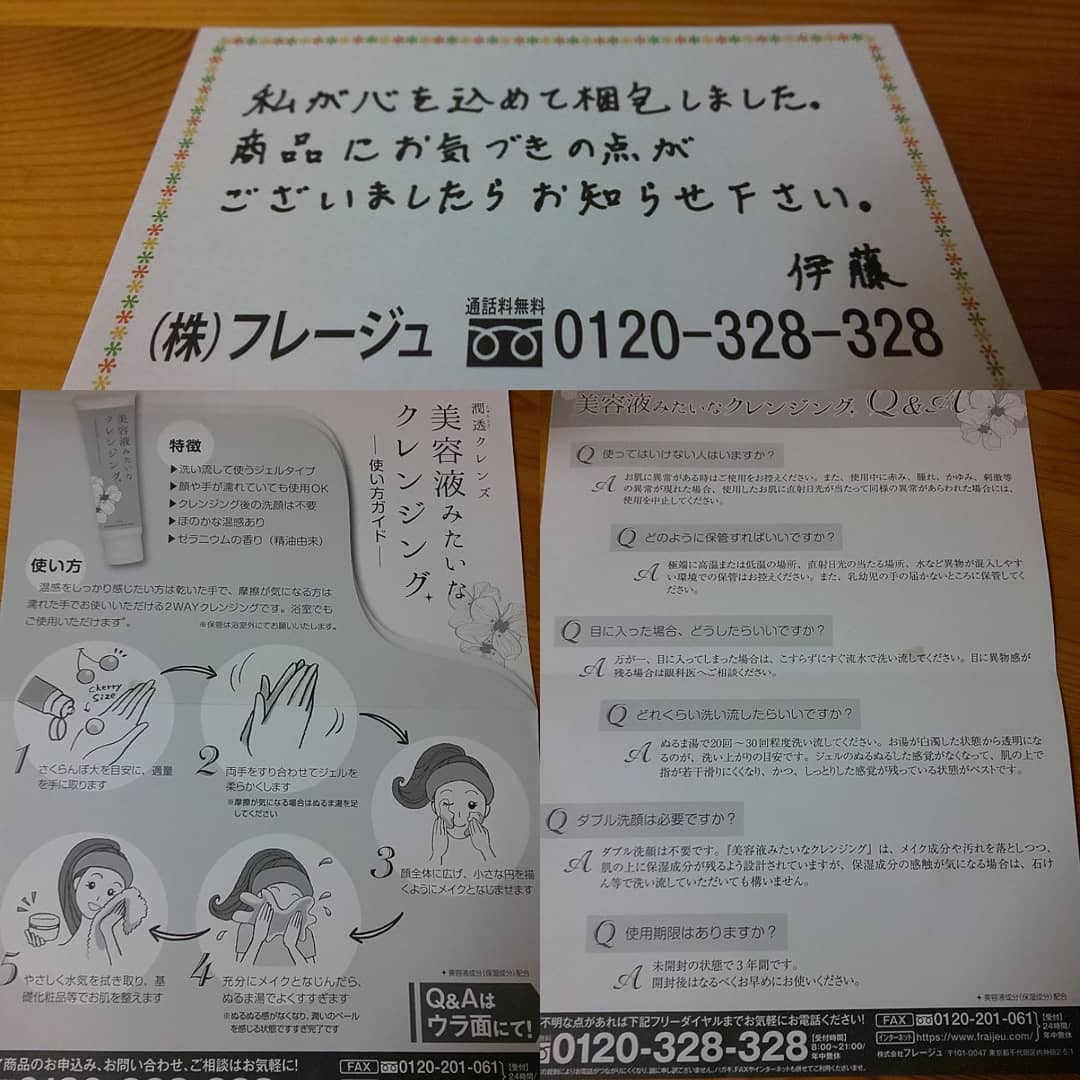 私が心を込めて梱包しました。
商品にお気づきの点が
ございましたらお知らせ下さい。
伊藤
(株)フレージュ
通話料無料
0120-328-328
潤透クレンズ
美容液みたいな
クレンジング。
―使い方ガイド―
美容液みたいな
クレンジング。
特徴
▶洗い流して使うジェルタイプ
▶顔や手が濡れていても使用OK
▶クレンジング後の洗顔は不要
▶ほのかな温感あり
▶ゼラニウムの香り(精油由来)
使い方
温感をしっかり感じたい方は乾いた手で、摩擦が気になる方は
濡れた手でお使いいただける2WAYクレンジングです。浴室でも
ご使用いただけます※。
※保管は浴室外にてお願いいたします。
Cherry
Size
1
さくらんぼ大を目安に、適量
を手に取ります
2
両手をすり合わせてジェルを
柔らかくします
※摩擦が気になる場合はぬるま湯を足
してください
3
顔全体に広げ、小さな円を描
くようにメイクとなじませます
4
充分にメイクとなじんだら、
ぬるま湯でよくすすぎます
※ぬるぬる感がなくなり、潤いのベール
を感じる状態ですすぎ完了です
5
やさしく水気を拭き取り、基
礎化粧品等でお肌を整えます
+美容液成分(保湿成分)配合
Q&Aは
ウラ面にて!
商品のお申込み、お問い合わせ、ご相談はお気軽に!
FAX 0120-201-061
【受付】
24時間/
美容液みたいなクレンジング。 Q&A
Q 使ってはいけない人はいますか?
A お肌に異常がある時はご使用をお控えください。また、使用中に赤み、腫れ、かゆみ、刺激等
の異常が現れた場合、使用したお肌に直射日光が当たって同様の異常があらわれた場合には、
使用を中止してください。
Q どのように保管すればいいですか?
A 極端に高温または低温の場所、直射日光の当たる場所、水など異物が混入しやす
い環境での保管はお控えください。また、乳幼児の手の届かないところに保管してく
ださい。
Q 目に入った場合、どうしたらいいですか?
A 万が一、目に入ってしまった場合は、こすらずにすぐ流水で洗い流してください。目に異物感が
残る場合は眼科医へご相談ください。
Q どれくらい洗い流したらいいですか?
A ぬるま湯で20回～30回程度洗い流してください。お湯が白濁した状態から透明にな
るのが、洗い上がりの目安です。ジェルのぬるぬるした感覚がなくなって、肌の上で
指が若干滑りにくくなり、かつ、しっとりした感覚が残っている状態がベストです。
Q ダブル洗顔は必要ですか?
A ダブル洗顔は不要です。『美容液みたいなクレンジング』は、メイク成分や汚れを落としつつ、
肌の上に保湿成分が残るよう設計されていますが、保湿成分の感触が気になる場合は、石け
ん等で洗い流していただいても構いません。
Q 使用期限はありますか?
A 未開封の状態で3年間です。
開封後はなるべくお早めにお使いください。
+美容液成分(保湿成分)配合
不明な点があれば下記フリーダイヤルまでお気軽にお電話ください!
0120-328-328
【受付】
8:00～21:00/
年中無休
FAX 0120-201-061
【受付】
24時間/
年中無休
インターネット https://www.fraijeu.com/
株式会社フレージュ 〒101-0047 東京都千代田区内神田2-5-1